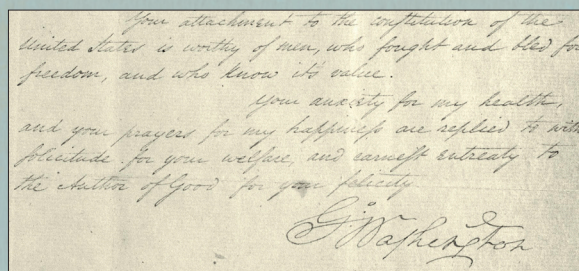 Your attachment to the constitution of the
United States is worthy of men, who fought and bled for
freedom, and who know it's value.
Your anxiety for my health,
and your prayers for my happineſs are replied to with
ſolicitude for your welfare, and earneſt entreaty to
the Author of Good for your felicity
G:Waſhington